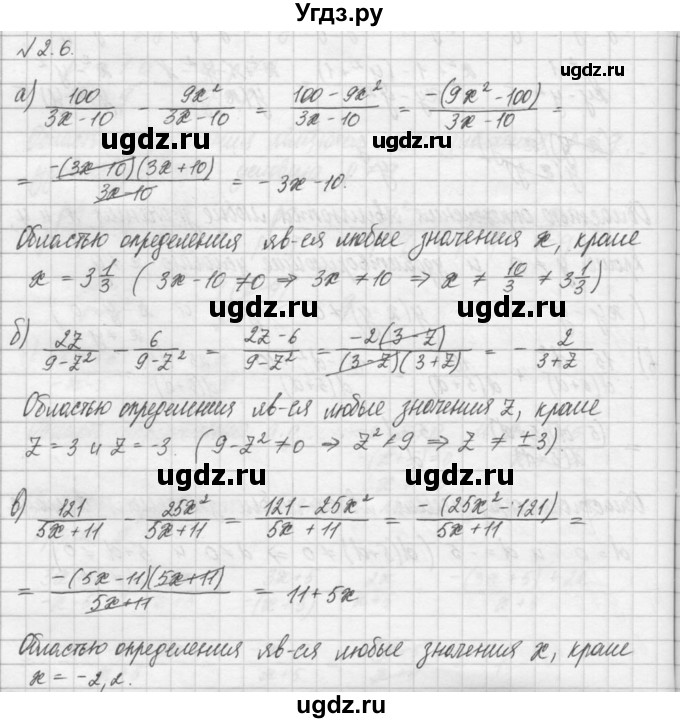 Угдз.ру
№2.6.
ugdz.ru
а) 100/(3x-10) - 9x²/(3x-10) = (100-9x²)/(3x-10) = -(9x²-100)/(3x-10) =
ugdz.ru ugdz.ru
= -(3x-10)(3x+10)/(3x-10) = -3x-10.
Областью определения яв-ся любые значения x, кроме
x = 3 1/3 (3x-10≠0 ⇒ 3x≠10 ⇒ x ≠ 10/3 ≠ 3 1/3)
ugdz.ru
б) 2z/(9-z²) - 6/(9-z²) = (2z-6)/(9-z²) = -2(3-z)/((3-z)(3+z)) = - 2/(3+z)
ugdz.ru ugdz.ru
Областью определения яв-ся любые значения z, кроме
z=3 и z=-3. (9-z²≠0 ⇒ z²≠9 ⇒ z ≠ ±3)
ugdz.ru
в) 121/(5x+11) - 25x²/(5x+11) = (121-25x²)/(5x+11) = -(25x²-121)/(5x+11) =
ugdz.ru ugdz.ru
= -(5x-11)(5x+11)/(5x+11) = 11+5x
Областью определения яв-ся любые значения x, кроме
x = -2,2.
ugdz.ru